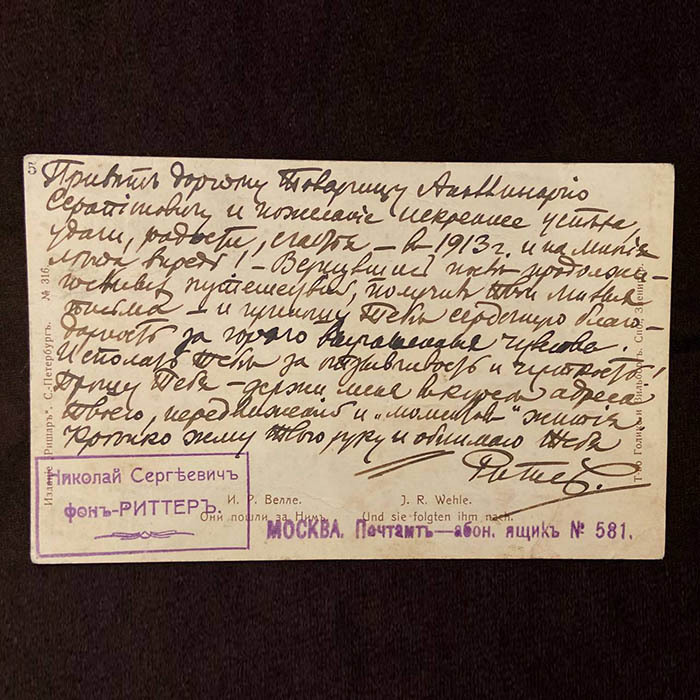 5
Привѣтъ дорогому Товарищу Аполлинарію
и пожеланіе искреннее успѣха,
удачи, радости, счастья – въ 1913 г. и на многія
лѣта впредь! – Вернувшись изъ продолжи-
тельныхъ путешествій, получилъ Твои милыя
письма – и приношу Тебѣ сердечную благо-
дарность за горячо выраженныя чувства.
Исполать Тебѣ за отзывчивость и чуткость!
Прошу Тебя – держи меня въ курсѣ адреса
Твоего, передвиженій и „моментовъ“ житія
Крѣпко жму Твою руку и обнимаю Тебя
Риттеръ.
Николай Сергѣевичъ
фонъ-РИТТЕРЪ.
И. Р. Велле.
Они пошли за Нимъ.
J. R. Wehle.
Und sie folgten ihm nach.
МОСКВА. Почтамтъ—абон. ящикъ № 581.
Изданіе „Ришаръ“. С.-Петербургъ. № 316
Т-во Голике и Вильборгъ. Спб. Звениг